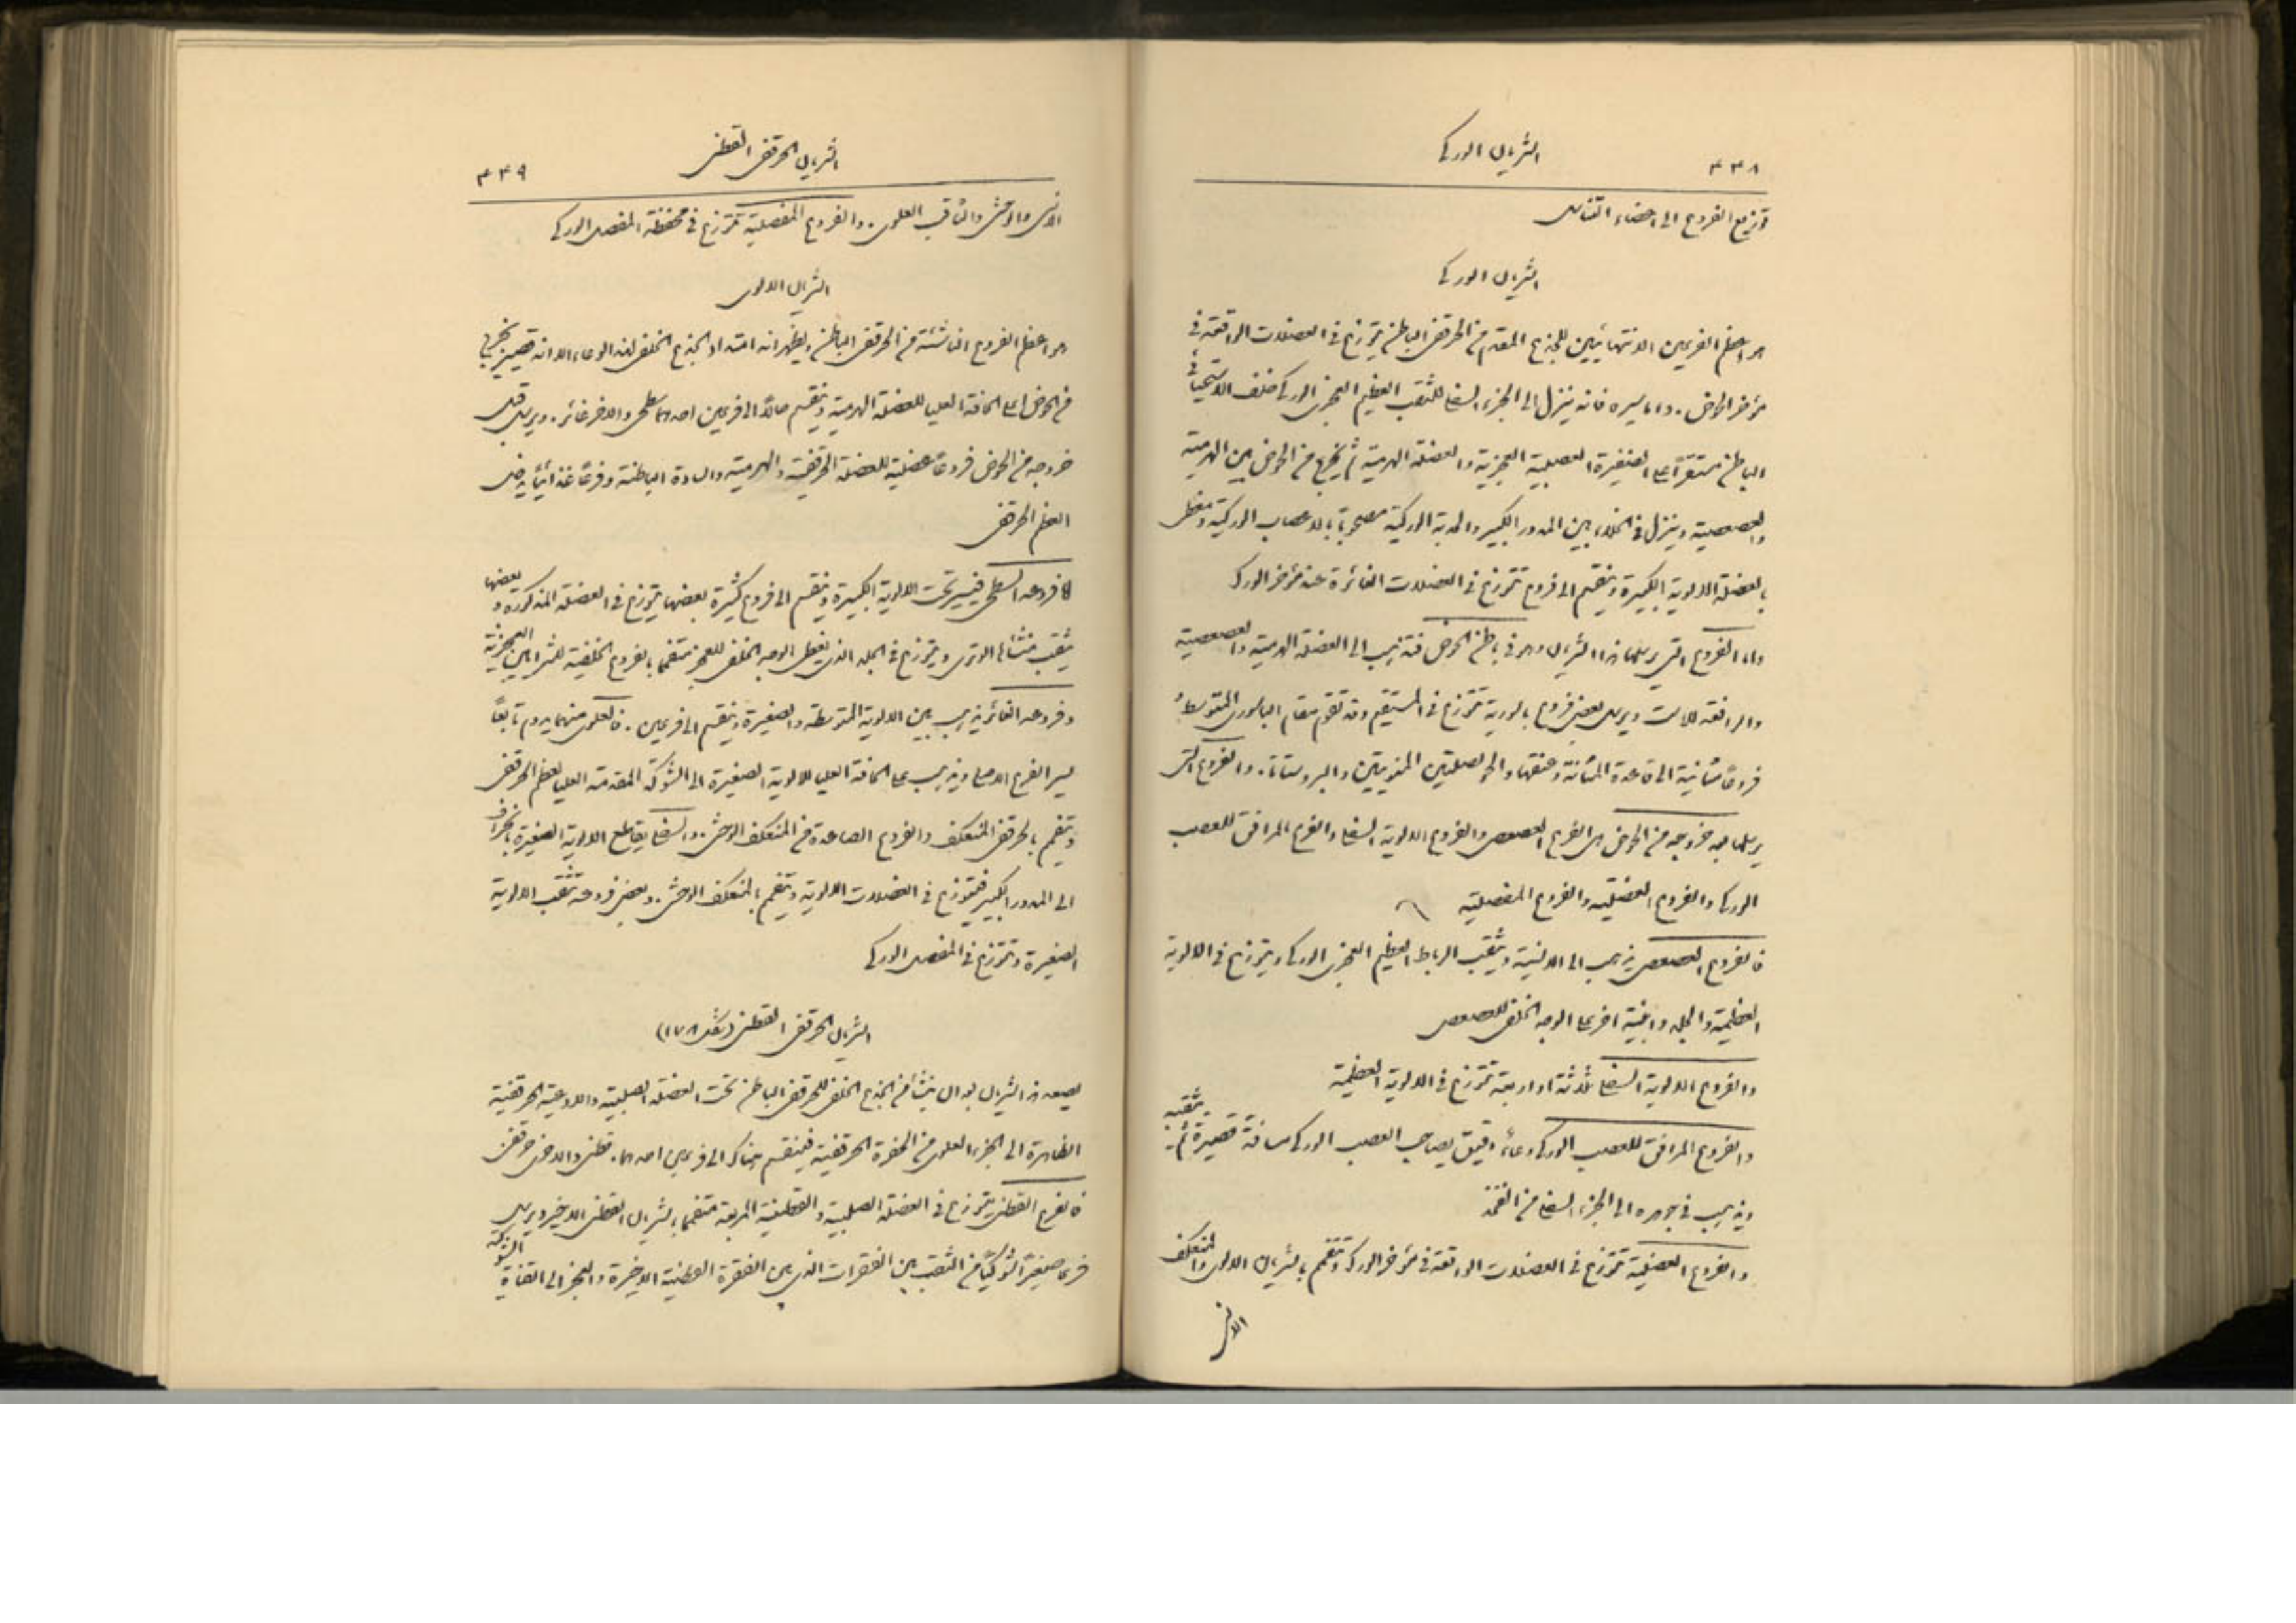 ٤٣٨ الشريان الوركي
توزيع الفروع الى اعضاء التناسل
الشريان الوركي
هو اعظم الفرعين الانتهائيين للجذع المقدم من الحرقفي الباطن يتوزع في العضلات الواقعة في
مؤخر الحوض. واما سيره فانه ينزل الى الجزء السفلي للثقب العظيم العجزي الوركي خلف الاستحيائي
الباطن مستقرًا على الضفيرة العصبية العجزية والعضلة الهرمية ثم يخرج من الحوض بين الهرمية
والعصعصية وينزل في الخلاء بين المدور الكبير والحدبة الوركية مصحوبًا بالاعصاب الوركية ومغطى
بالعضلة الالوية الكبيرة وينقسم الى فروع تتوزع في العضلات الغائرة عند مؤخر الورك
واما الفروع التي يرسلها هذا الشريان وهو في باطن الحوض فتذهب الى العضلة الهرمية والعصعصية
والرافعة للاست ويرسل بعض فروع باسورية تتوزع في المستقيم وقد تقوم مقام الباسوري المتوسط
فروعًا مثانية الى قاعدة المثانة وعنقها والحويصلتين المنويتين والبروستاتا. والفروع التي
يرسلها بعد خروجه من الحوض هي الفرع العصعصي والفروع الالوية السفلى والفرع المرافق للعصب
الوركي والفروع العضلية والفروع المفصلية
فالفرع العصعصي يذهب الى الانسية ويثقب الرباط العظيم العجزي الوركي ويتوزع في الالوية
العظيمة والجلد وابنية اخرى على الوجه الخلفي للعصعص
والفروع الالوية السفلى ثلاثة او اربعة تتوزع في الالوية العظيمة
والفرع المرافق للعصب الوركي وعاء دقيق يصاحب العصب الوركي مسافة قصيرة ثم يثقبه
ويذهب في جوهره الى الجزء السفلي من الفخذ
والفروع العضلية تتوزع في العضلات الواقعة في مؤخر الورك وتتفمم بالشريان الالوي والمنعكف
الانسي
الشريان الحرقفي القطني ٤٣٩
الانسي والوحشي والثاقب العلوي. والفروع المفصلية تتوزع في محفظة المفصل الوركي
الشريان الالوي
هو اعظم الفروع الناشئة من الحرقفي الباطن ويظهر انه امتداد الجذع الخلفي لهذا الوعاء الا انه قصير يخرج
من الحوض على الحافة العليا للعضلة الهرمية وينقسم حالًا الى فرعين احدهما سطحي والاخر غائر. ويرسل قبل
خروجه من الحوض فروعًا عضلية للعضلة الحرقفية والهرمية والسادة الباطنة وفرعًا غذائيًا يدخل
العظم الحرقفي
اما فرعه السطحي فيسير تحت الالوية الكبيرة وينقسم الى فروع كثيرة بعضها يتوزع في العضلة المذكورة وبعضها
يثقب منشأها الوتري ويتوزع في الجلد الذي يغطي الوجه الخلفي للعجز متفمما بالفروع الخلفية للشرايين العجزية
وفرعه الغائر يذهب بين الالوية المتوسطة والصغيرة وينقسم الى فرعين. فالعلوي منهما يدوم تابعًا
سير الفرع الاصلي ويذهب على الحافة العليا للالوية الصغيرة الى الشوكة المقدمة العليا لعظم الحرقفي
ويتفمم بالحرقفي المنعكف والفروع الصاعدة من المنعكف الوحشي. والسفلي يقاطع الالوية الصغيرة بانحراف
الى المدور الكبير فيتوزع في العضلات الالوية ويتفمم بالمنعكف الوحشي. وبعض فروعه تثقب الالوية
الصغيرة وتتوزع في المفصل الوركي
الشريان الحرقفي القطني (شكل ١٧٨)
يصعد هذا الشريان بعد ان ينشأ من الجذع الخلفي للحرقفي الباطن تحت العضلة الصلبية والاوعية الحرقفية
الظاهرة الى الجزء العلوي من الحفرة الحرقفية فينقسم هناك الى فرعين احدهما قطني والاخر حرقفي
فالفرع القطني يتوزع في العضلة الصلبية والقطنية المربعة متفمما بالشريان القطني الاخير ويرسل
فرعًا صغيرًا شوكيًا من الثقب بين الفقرات الذي بين الفقرة القطنية الاخيرة والعجز الى القناة الشوكية